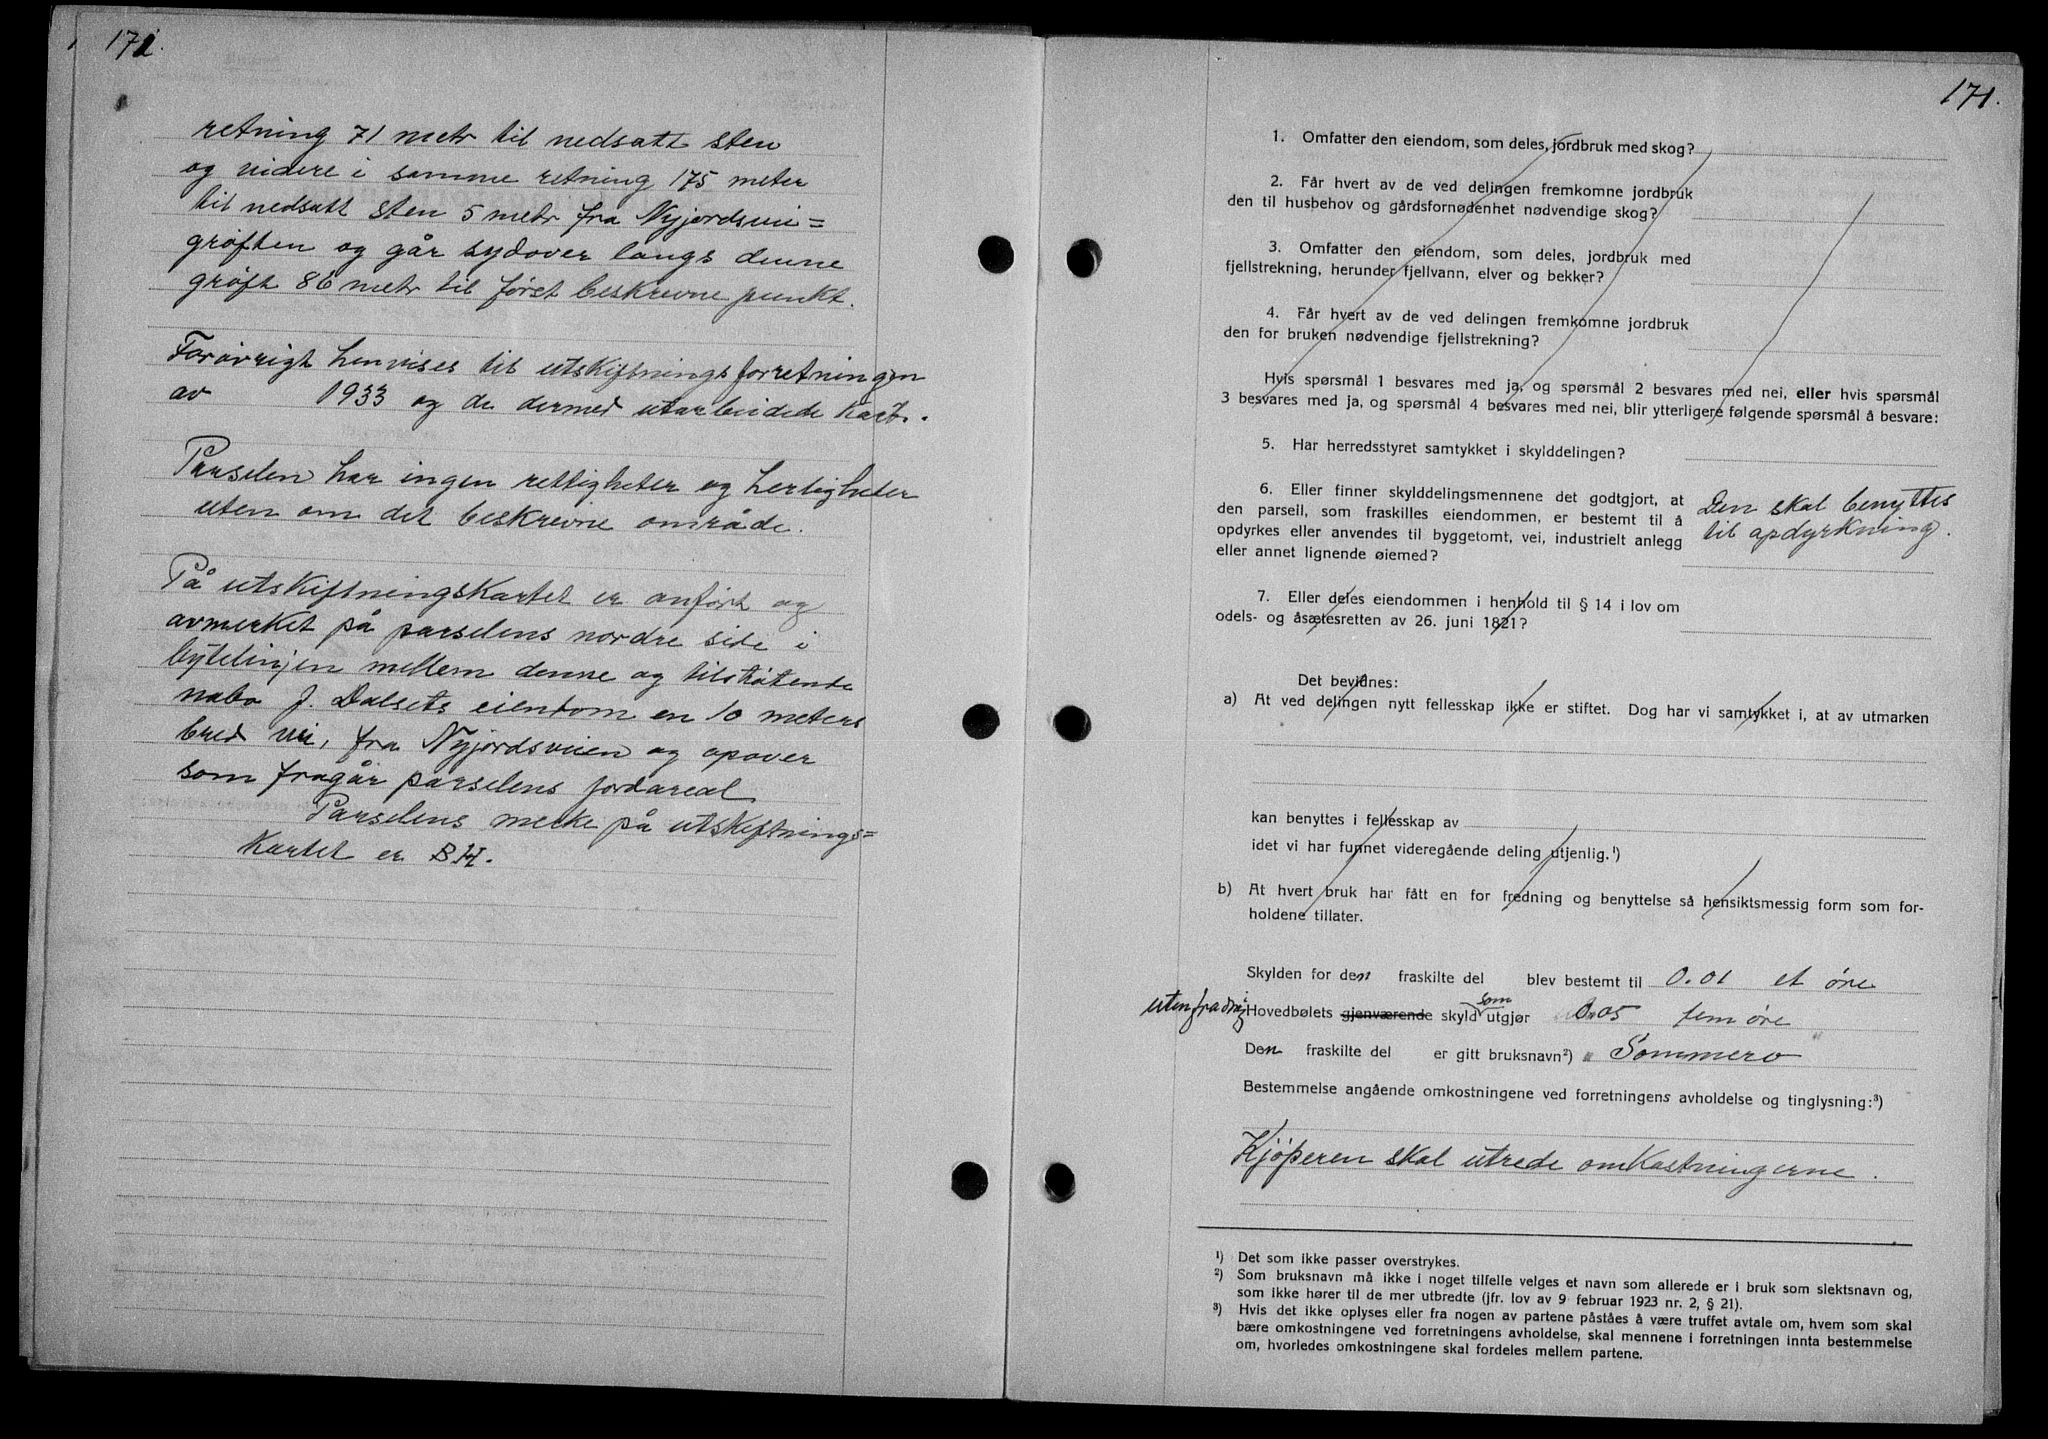 171.
retning 71 metr til nedsatt sten
og videre i samme retning 175 meter
til nedsatt sten 5 metr fra Nyjordsvei=
grøften og går sydover langs denne
grøft 86 metr til først beskrevne punkt.
Forøvrigt henvises til utskiftningsforretningen
av 1933 og de dermed utarbeidede kart.
Parselen har ingen rettigheter og herligheter
uten om det beskrevne område.
På utskiftningskartet er anført og
avmerket på parselens nordre side i
bytelinjen mellem denne og tilstøtende
nabo J. Dalsets eiendom en 10 meters
bred vei, fra Nyjordsveien og opover
som fragår parselens jordareal
Parselens merke på utskiftnings=
kartet er BH.
171.
1. Omfatter den eiendom, som deles, jordbruk med skog?
2. Får hvert av de ved delingen fremkomne jordbruk
den til husbehov og gårdsfornødenhet nødvendige skog?
3. Omfatter den eiendom, som deles, jordbruk med
fjellstrekning, herunder fjellvann, elver og bekker?
4. Får hvert av de ved delingen fremkomne jordbruk
den for bruken nødvendige fjellstrekning?
Hvis spørsmål 1 besvares med ja, og spørsmål 2 besvares med nei, eller hvis spørsmål
3 besvares med ja, og spørsmål 4 besvares med nei, blir ytterligere følgende spørsmål å besvare:
5. Har herredsstyret samtykket i skylddelingen?
6. Eller finner skylddelingsmennene det godtgjort, at
den parsell, som fraskilles eiendommen, er bestemt til å
opdyrkes eller anvendes til byggetomt, vei, industrielt anlegg
eller annet lignende øiemed?
Den skal benyttes
til opdyrkning.
7. Eller deles eiendommen i henhold til § 14 i lov om
odels- og åsætesretten av 26. juni 1821?
Det bevidnes:
a) At ved delingen nytt fellesskap ikke er stiftet. Dog har vi samtykket i, at av utmarken
kan benyttes i fellesskap av
idet vi har funnet videregående deling utjenlig.¹)
b) At hvert bruk har fått en for fredning og benyttelse så hensiktsmessig form som for-
holdene tillater.
Skylden for den fraskilte del blev bestemt til 0.01 et øre
uten fradrag i Hovedbølets gjenværende skyld som utgjør 0.05 fem øre
Den fraskilte del er gitt bruksnavn²) "Sommero"
Bestemmelse angående omkostningene ved forretningens avholdelse og tinglysning:³)
Kjøperen skal utrede omkostningerne.
¹) Det som ikke passer overstrykes.
²) Som bruksnavn må ikke i noget tilfelle velges et navn som allerede er i bruk som slektsnavn og,
som ikke hører til de mer utbredte (jfr. lov av 9 februar 1923 nr. 2, § 21).
³) Hvis det ikke oplyses eller fra nogen av partene påståes å være truffet avtale om, hvem som skal
bære omkostningene ved forretningens avholdelse, skal mennene i forretningen innta bestemmelse
om, hvorledes omkostningene skal fordeles mellem partene.